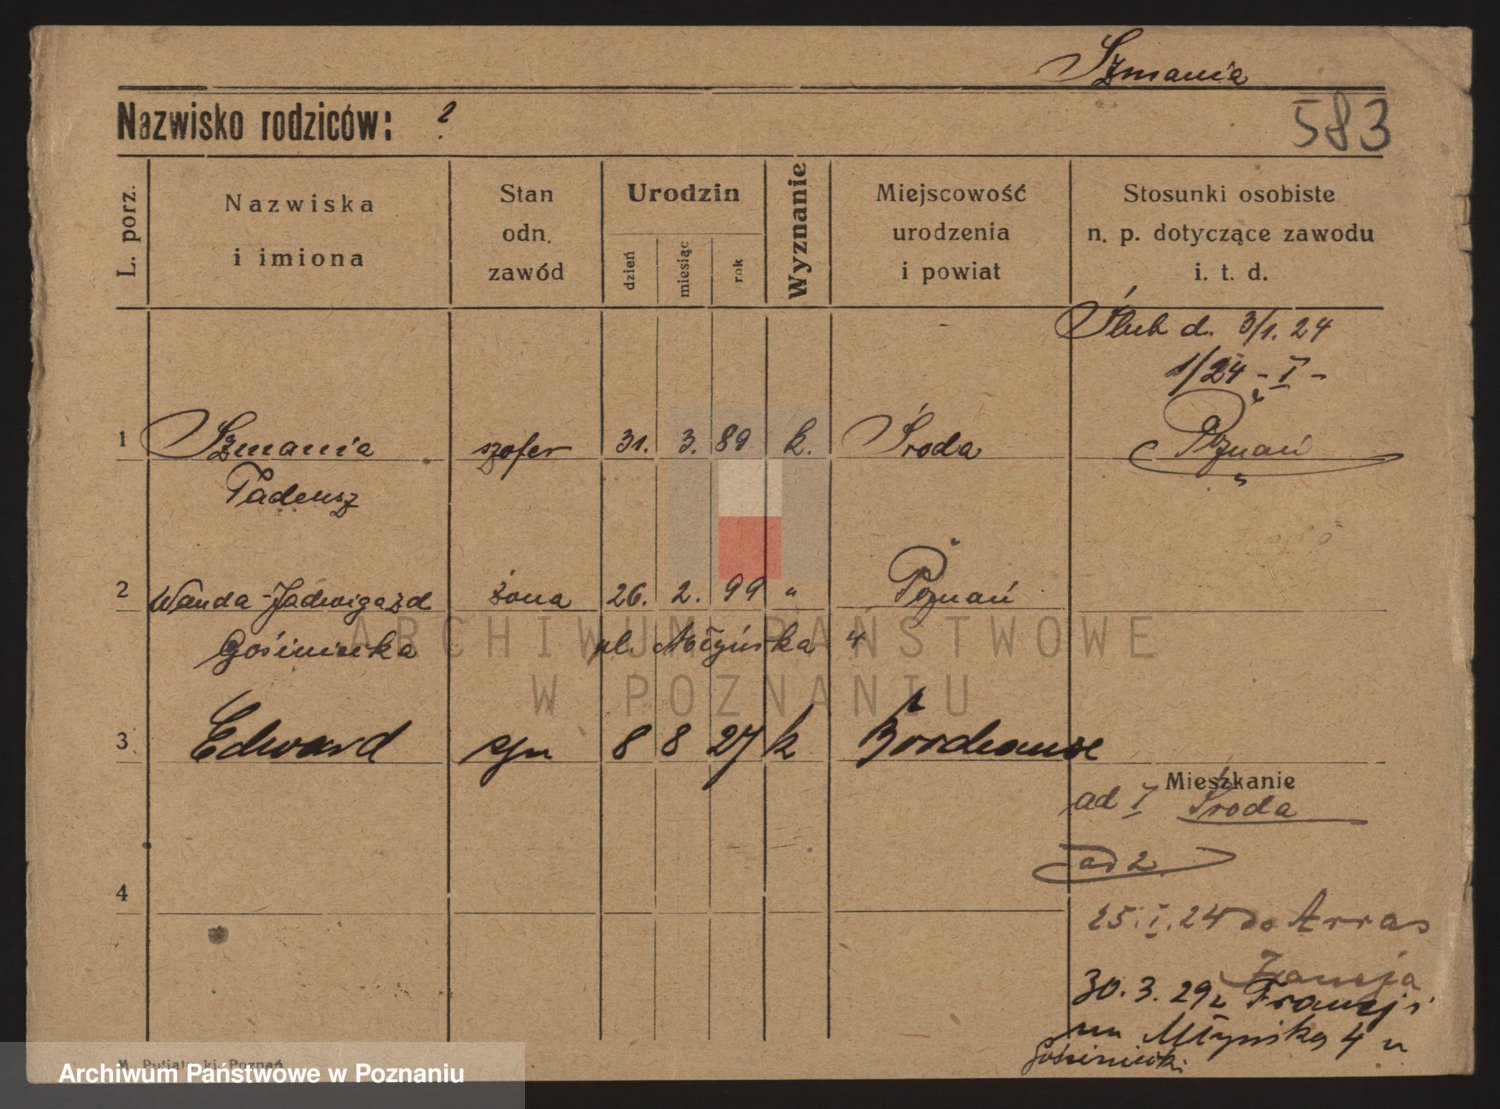 Szmania
Nazwisko rodziców: ?
583
L. porz.
Nazwiska
i imiona
Stan
odn.
zawód
Urodzin
dzień
miesiąc
rok
Wyznanie
Miejscowość
urodzenia
i powiat
Stosunki osobiste
n. p. dotyczące zawodu
i. t. d.
Ślub d. 3/1. 24
1/24 - I -
Poznań
1 Szmania szofer 31. 3. 89 k. Środa
Tadeusz
2 Wanda-Jadwiga zd żona 26. 2. 99 " Poznań
Gośiniecka pl. Młyńska 4
3 Edward syn 8 8 27 k Bordeause
Mieszkanie
ad I Środa
ad 2
4
25. I. 24 do Arras
30. 3. 29 z Francji
na Młyńską 4 u
ARCHIWUM PAŃSTWOWE
W POZNANIU
Poznań
Archiwum Państwowe w Poznaniu